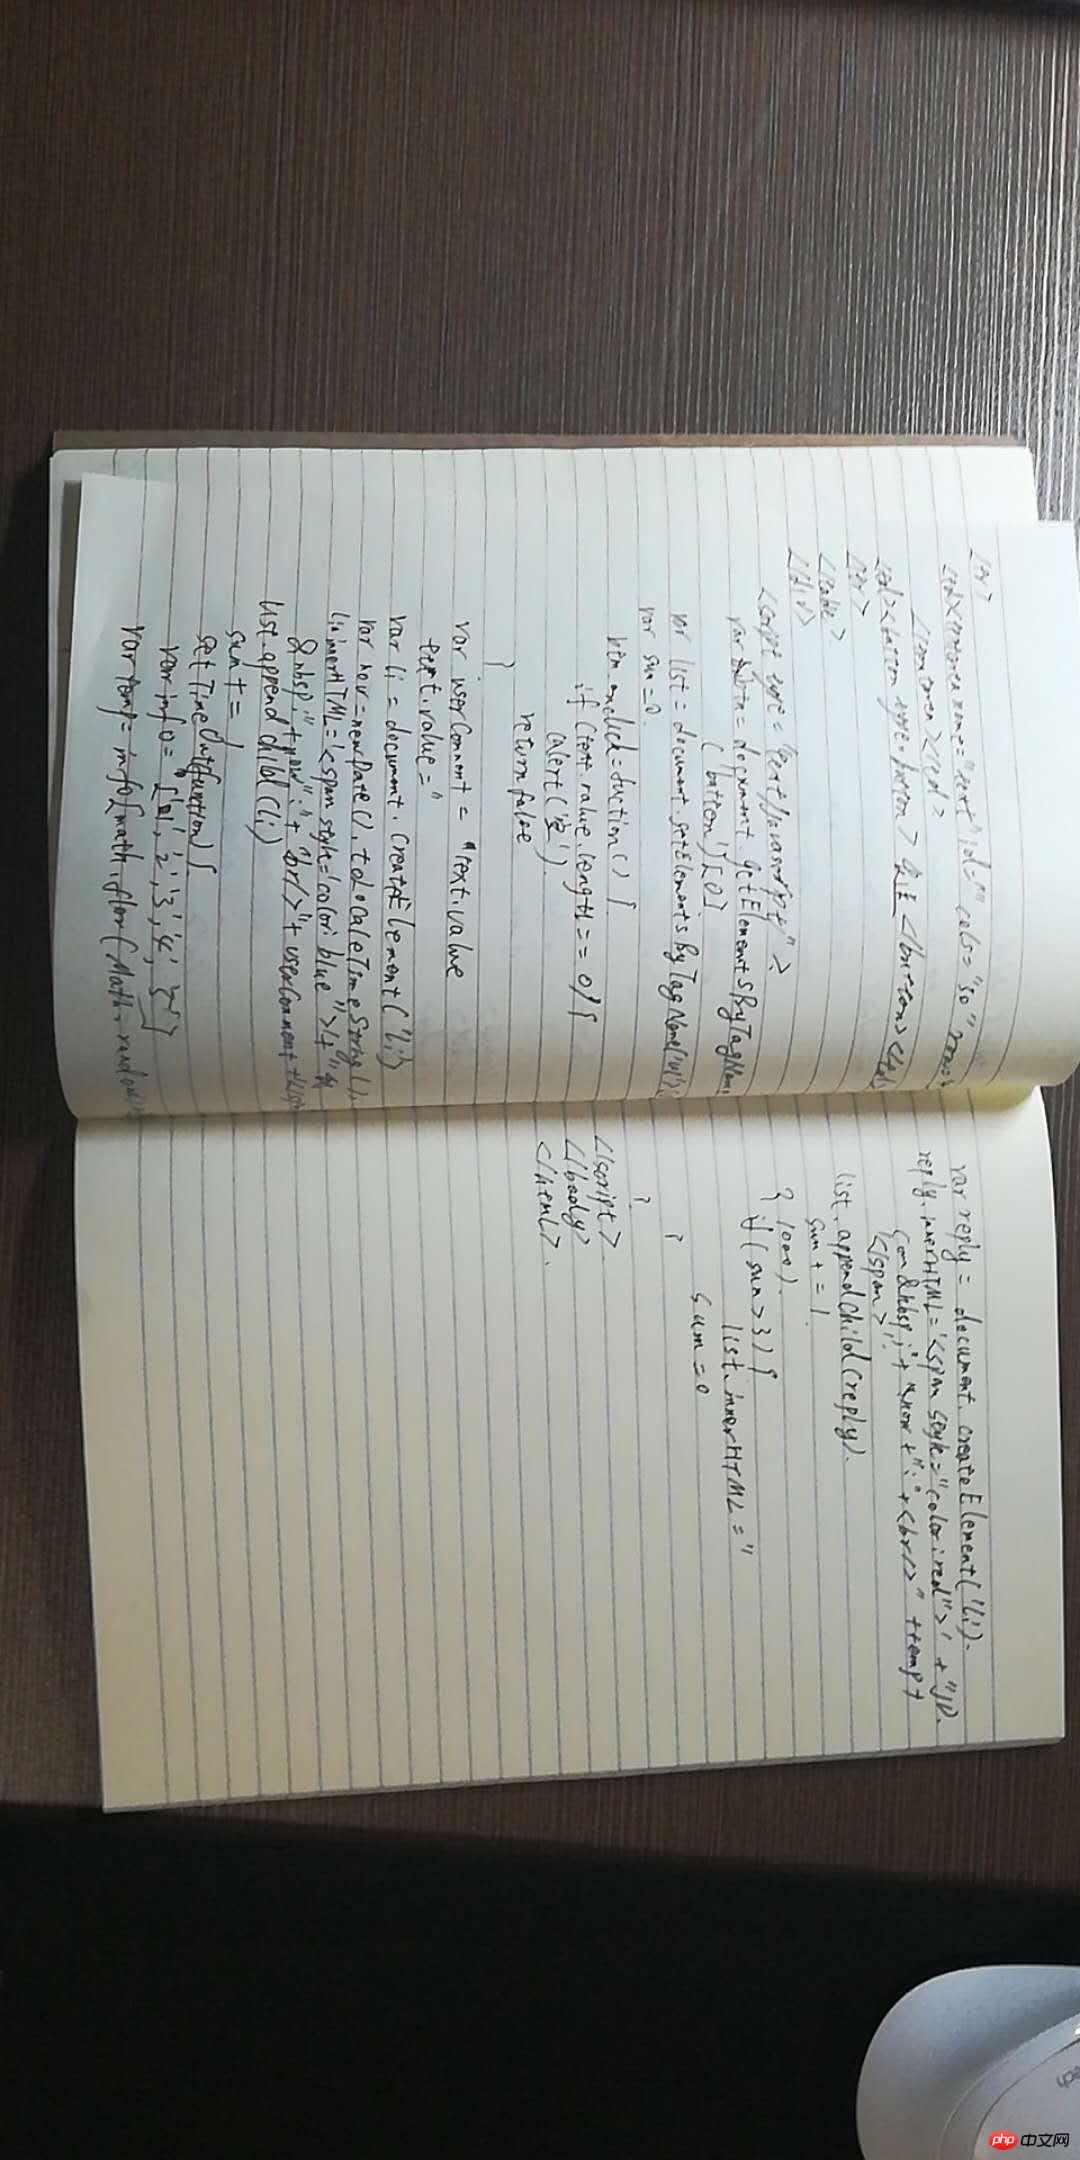 <tr>
<td><textarea name="text" id="" cols="50" rows=
</td>
<td><button type=button></button></td>
</tr>
</table>
</div>
<script type="text/javascript">
var btn = document.getElementsByTagName
('button')[0]
var list = document.getElementsByTagName('ul')
var sum = 0.
btn.onclick=fuction() {
if (text.value.length == 0) {
(alert('空').
return false
}
var userComent = text.value
text.value="
var li = document.createElement('li')
var now=newDate().toLocaleTimeString().
li.innerHTML='<span style='color:blue">
&nbsp;"+now":"+"<br/>"+userComment+
list.appendchild(li)
sum += 1
setTimeOut(function){
var info= ['1','2','3','4',
var temp= info[math.flor(Math.random
var reply = document.createElement('li').
reply.innerHTML='<span style="color:red">'+"JD.
&nbsp;"+now+":"+<br/>"+temp+
</span>'.
list.appendChild(reply).
sum+=1.
} 1000).
if(sum>3){
list.innerHTML="
sum=0
}
}
</script>
</body>
</html>.
ech
php 中文网